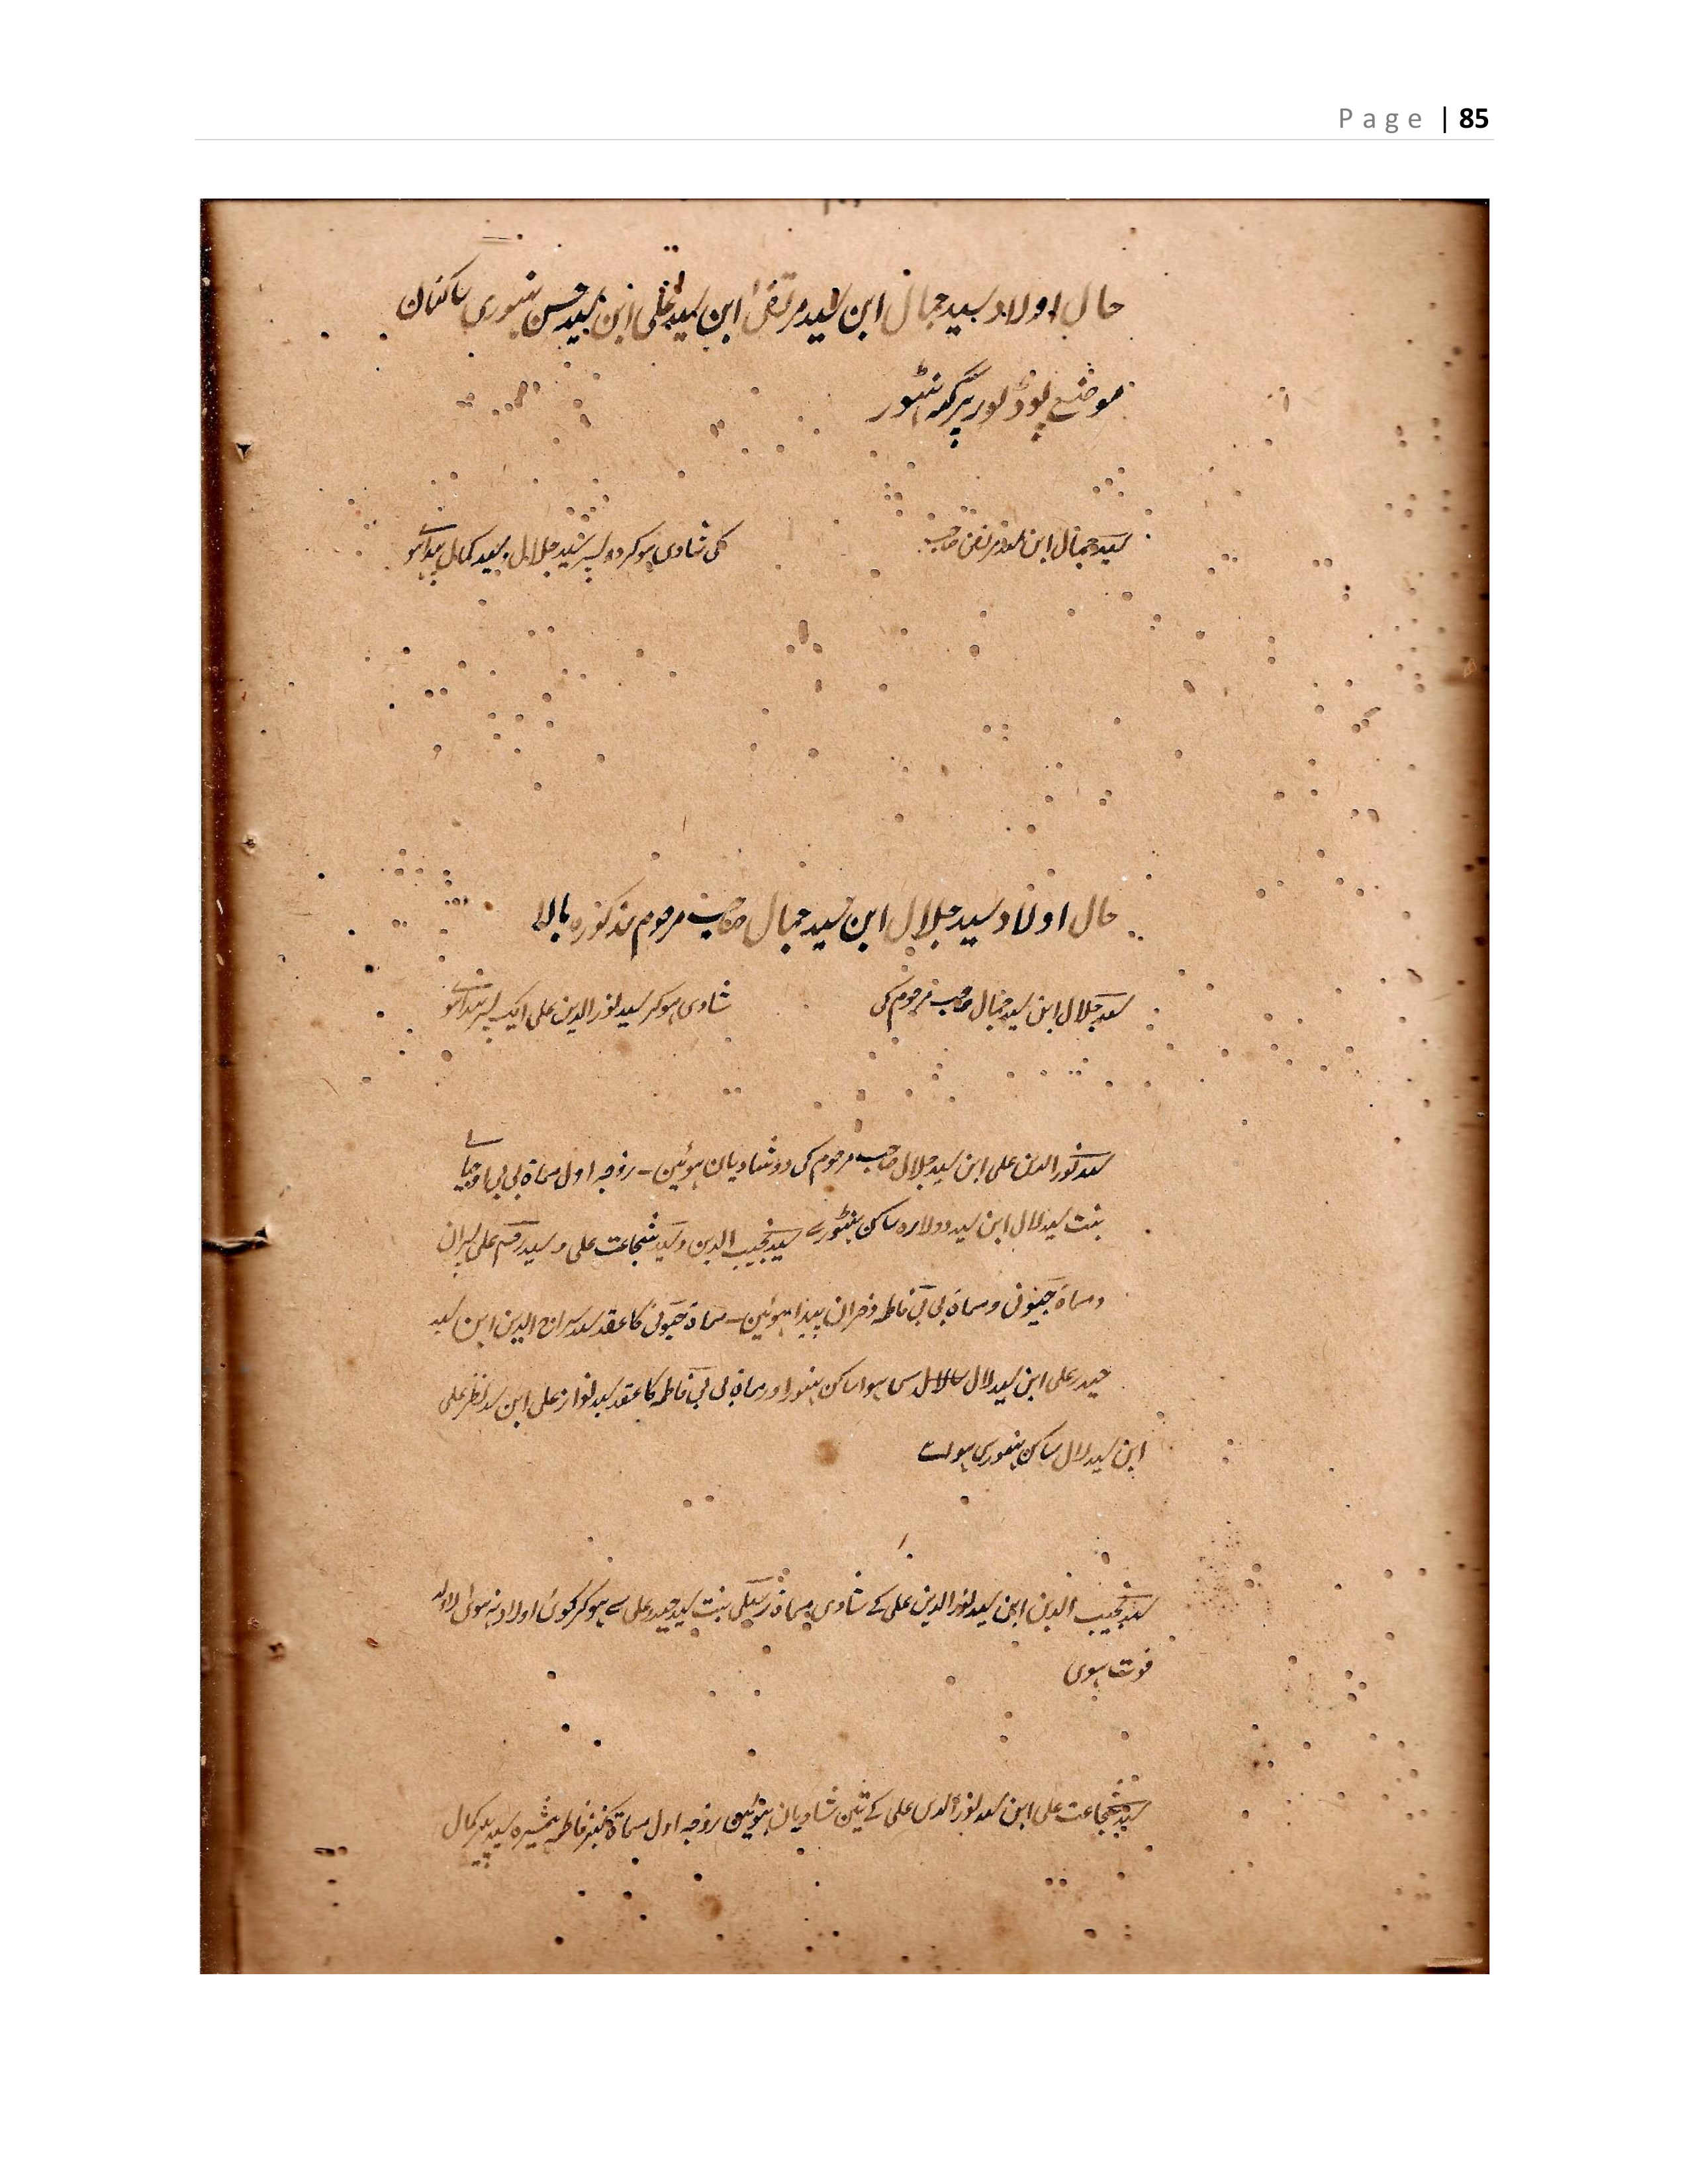 Page | 85
حال اولاد سید جمال ابن سید مرتضیٰ ابن سید علی ابن سید حسن ساکنان
موضع پرگنہ
سید جمال ابن سید مرتضیٰ صاحب کی شادی ہوکر دو پسر سید جلال و سید کمال پیدا ہوے
حال اولاد سید جلال ابن سید جمال صاحب مرحوم مذکورہ بالا
سید جلال ابن سید جمال صاحب مرحوم کی شادی ہوکر سید نور الدین علی ایک پسر پیدا ہوے
سید نور الدین علی ابن سید جلال صاحب مرحوم کی دو شادیان ہوئین ۔ زوجہ اول مسماۃ بی بی
بنت سید لال ابن سید دولارہ ساکن سید نجیب الدین و سید شجاعت علی و سید علی پسران
و مسماۃ و مسماۃ بی بی فاطمہ دختران پیدا ہوئین ۔ مسماۃ کا عقد سید سراج الدین ابن سید
حیدر علی ابن سید لال سے ہوا ساکن اور مسماۃ بی بی فاطمہ کا عقد سید نواز علی ابن سید نظر علی
ابن سید لال ساکن
سید نجیب الدین ابن سید نور الدین علی کے شادی مسماۃ بنت سید حیدر علی سے ہوکر کوئی اولاد نہ ہوئی لاولد
فوت ہوی
سید شجاعت علی ابن سید نور الدین علی کے تین شادیان ہوئین زوجہ اول مسماۃ کنیز فاطمہ ہمشیرہ سید کمال